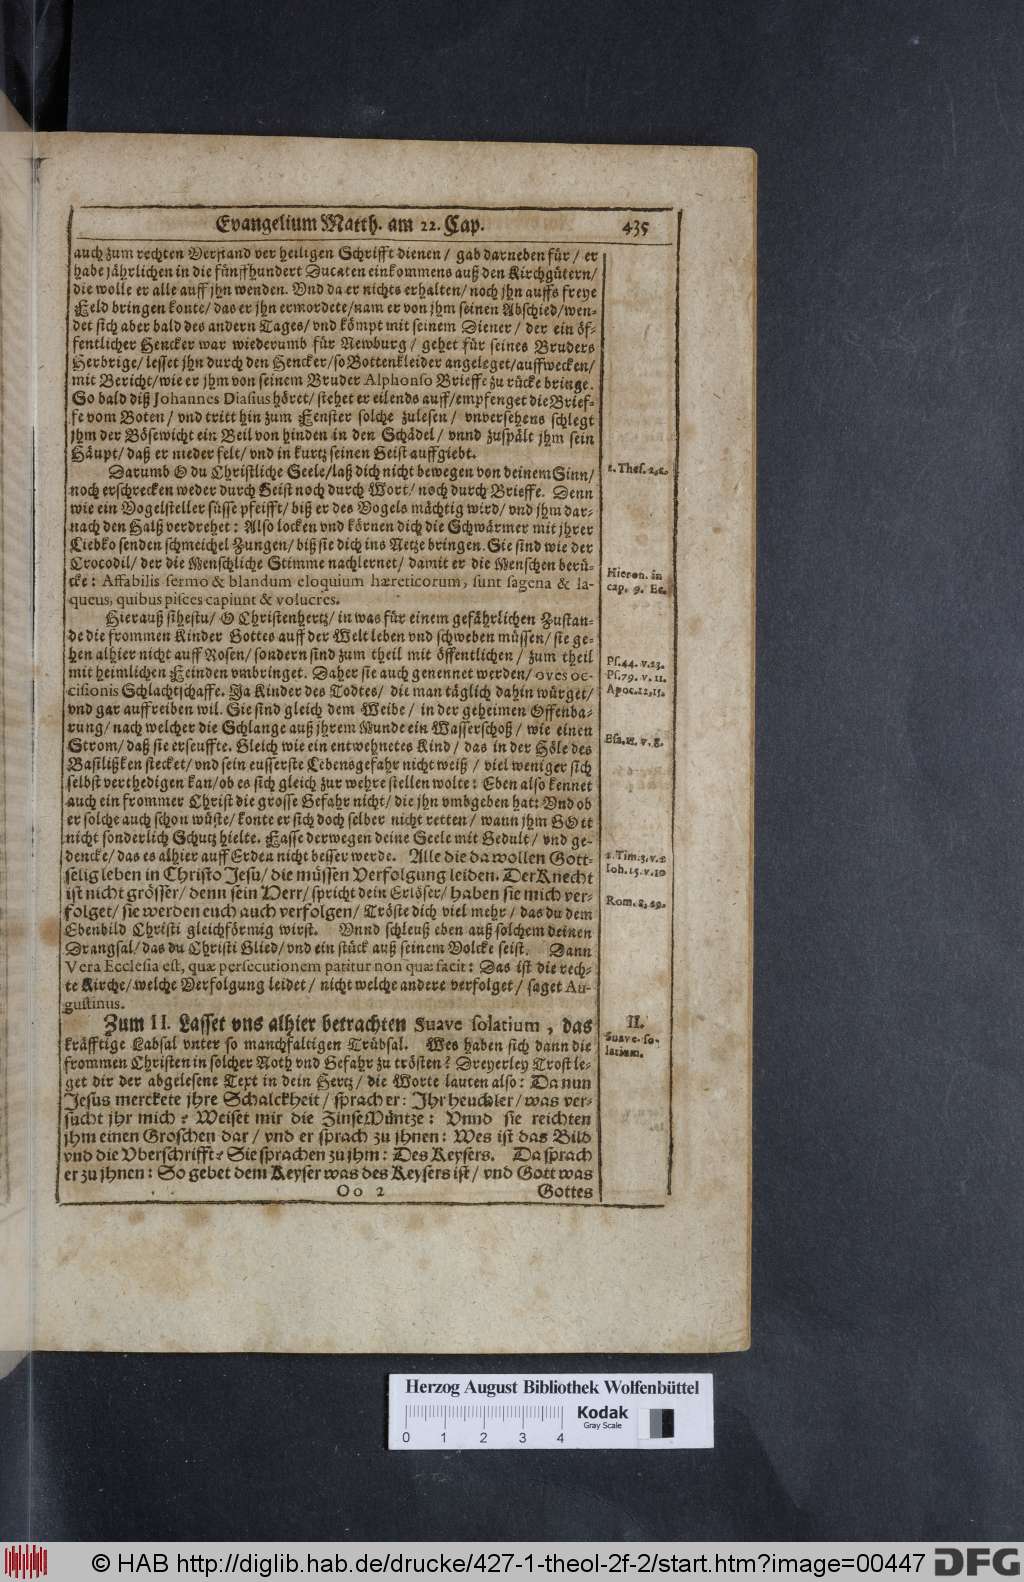 Evangelium Matth. am 22. Cap. 435
auch zum rechten Verstand der heiligen Schrifft dienen / gab darneben für / er
habe jährlichen in die fünffhundert Ducaten einkommens auß den Kirchgütern /
die wolle er alle auff jhn wenden. Vnd da er nichts erhalten / noch jhn auffs freye
Feld bringen konte / das er jhn ermordete / nam er von jhm seinen Abschied / wen-
det sich aber bald des andern Tages / vnd kömpt mit seinem Diener / der ein öf-
fentlicher Hencker war wiederumb für Newburg / gehet für seines Bruders
Herbrige / lesset jhn durch den Hencker / so Bottenkleider angeleget / auffwecken /
mit Bericht / wie er jhm von seinem Bruder Alphonso Brieffe zu rücke bringe.
So bald diß Johannes Diasius höret / stehet er eilends auff / empfenget die Brief-
fe vom Boten / vnd tritt hin zum Fenster solche zulesen / vnversehens schlegt
jhm der Bösewicht ein Beil von hinden in den Schädel / vnnd zuspält jhm sein
Häupt / daß er nieder felt / vnd in kurtz seinen Geist auffgiebt.
Darumb O du Christliche Seele / laß dich nicht bewegen von deinem Sinn /
noch erschrecken weder durch Geist noch durch Wort / noch durch Brieffe. Denn
wie ein Vogelsteller süsse pfeifft / biß er des Vogels mächtig wird / vnd jhm dar-
nach den Halß verdrehet: Also locken vnd körnen dich die Schwärmer mit jhrer
Liebkosenden schmeichel Zungen / biß sie dich ins Netze bringen. Sie sind wie der
Crocodil / der die Menschliche Stimme nachlernet / damit er die Menschen berü-
cke: Affabilis sermo & blandum eloquium hæreticorum, sunt sagena & la-
queus, quibus pisces capiunt & volucres.
Hierauß sihestu / O Christenhertz / in was für einem gefährlichen Zustan-
de die frommen Kinder Gottes auff der Welt leben vnd schweben müssen / sie ge-
hen alhier nicht auff Rosen / sondern sind zum theil mit öffentlichen / zum theil
mit heimlichen Feinden vmbringet. Daher sie auch genennet werden / oves oc-
cisionis Schlachtschaffe. Ja Kinder des Todtes / die man täglich dahin würget /
vnd gar auffreiben wil. Sie sind gleich dem Weibe / in der geheimen Offenba-
rung / nach welcher die Schlange auß jhrem Munde ein Wasser schoß / wie einen
Strom / daß sie erseuffte. Gleich wie ein entwehnetes Kind / das in der Höle des
Basilißken stecket / vnd sein eusserste Lebensgefahr nicht weiß / viel weniger sich
selbst verthedigen kan / ob es sich gleich zur wehre stellen wolte: Eben also kennet
auch ein frommer Christ die grosse Gefahr nicht / die jhn vmbgeben hat: Vnd ob
er solche auch schon wüste / konte er sich doch selber nicht retten / wann jhm GOtt
nicht sonderlich Schutz hielte. Fasse derwegen deine Seele mit Gedult / vnd ge-
dencke / das es alhier auff Erden nicht besser werde. Alle die da wollen Gott-
selig leben in Christo Jesu / die müssen Verfolgung leiden. Der Knecht
ist nicht grösser / denn sein Herr / spricht dein Erlöser / haben sie mich ver-
folget / sie werden euch auch verfolgen / Tröste dich viel mehr / das du dem
Ebenbild Christi gleichförmig wirst. Vnnd schleuß eben auß solchem deinen
Drangsal / das du Christi Glied / vnd ein stück auß seinem Volcke seist. Dann
Vera Ecclesia est, quæ persecutionem patitur non quæ facit: Das ist die rech-
te Kirche / welche Verfolgung leidet / nicht welche andere verfolget / saget Au-
gustinus.
Zum II. Lasset vns alhier betrachten Suave solatium, das
kräfftige Labsal vnter so manchfaltigen Trübsal. Wes haben sich dann die
frommen Christen in solcher Noth vnd Gefahr zu trösten? Dreyerley Trost le-
get dir der abgelesene Text in dein Hertz / die Worte lauten also: Da nun
Jesus merckete jhre Schalckheit / sprach er: Jhr heuchler / was ver-
sucht jhr mich? Weiset mir die ZinseMüntze: Vnnd sie reichten
jhm einen Groschen dar / vnd er sprach zu jhnen: Wes ist das Bild
vnd die Vberschrifft? Sie sprachen zu jhm: Des Keysers. Da sprach
er zu jhnen: So gebet dem Keyser was des Keysers ist / vnd Gott was
Oo 2 Gottes
2. Thes. 2.2.
Hieron. in
cap. 9. Ec.
Ps. 44. v. 23.
Ps. 79. v. 11.
Apoc. 12.15.
Esa. 11. v. 8.
2. Tim. 3. v. 12
Ioh. 15. v. 20
Rom. 8. 29.
II.
Suave so-
latium.
Herzog August Bibliothek Wolfenbüttel
Kodak
Gray Scale
0 1 2 3 4
© HAB http://diglib.hab.de/drucke/427-1-theol-2f-2/start.htm?image=00447
DFG